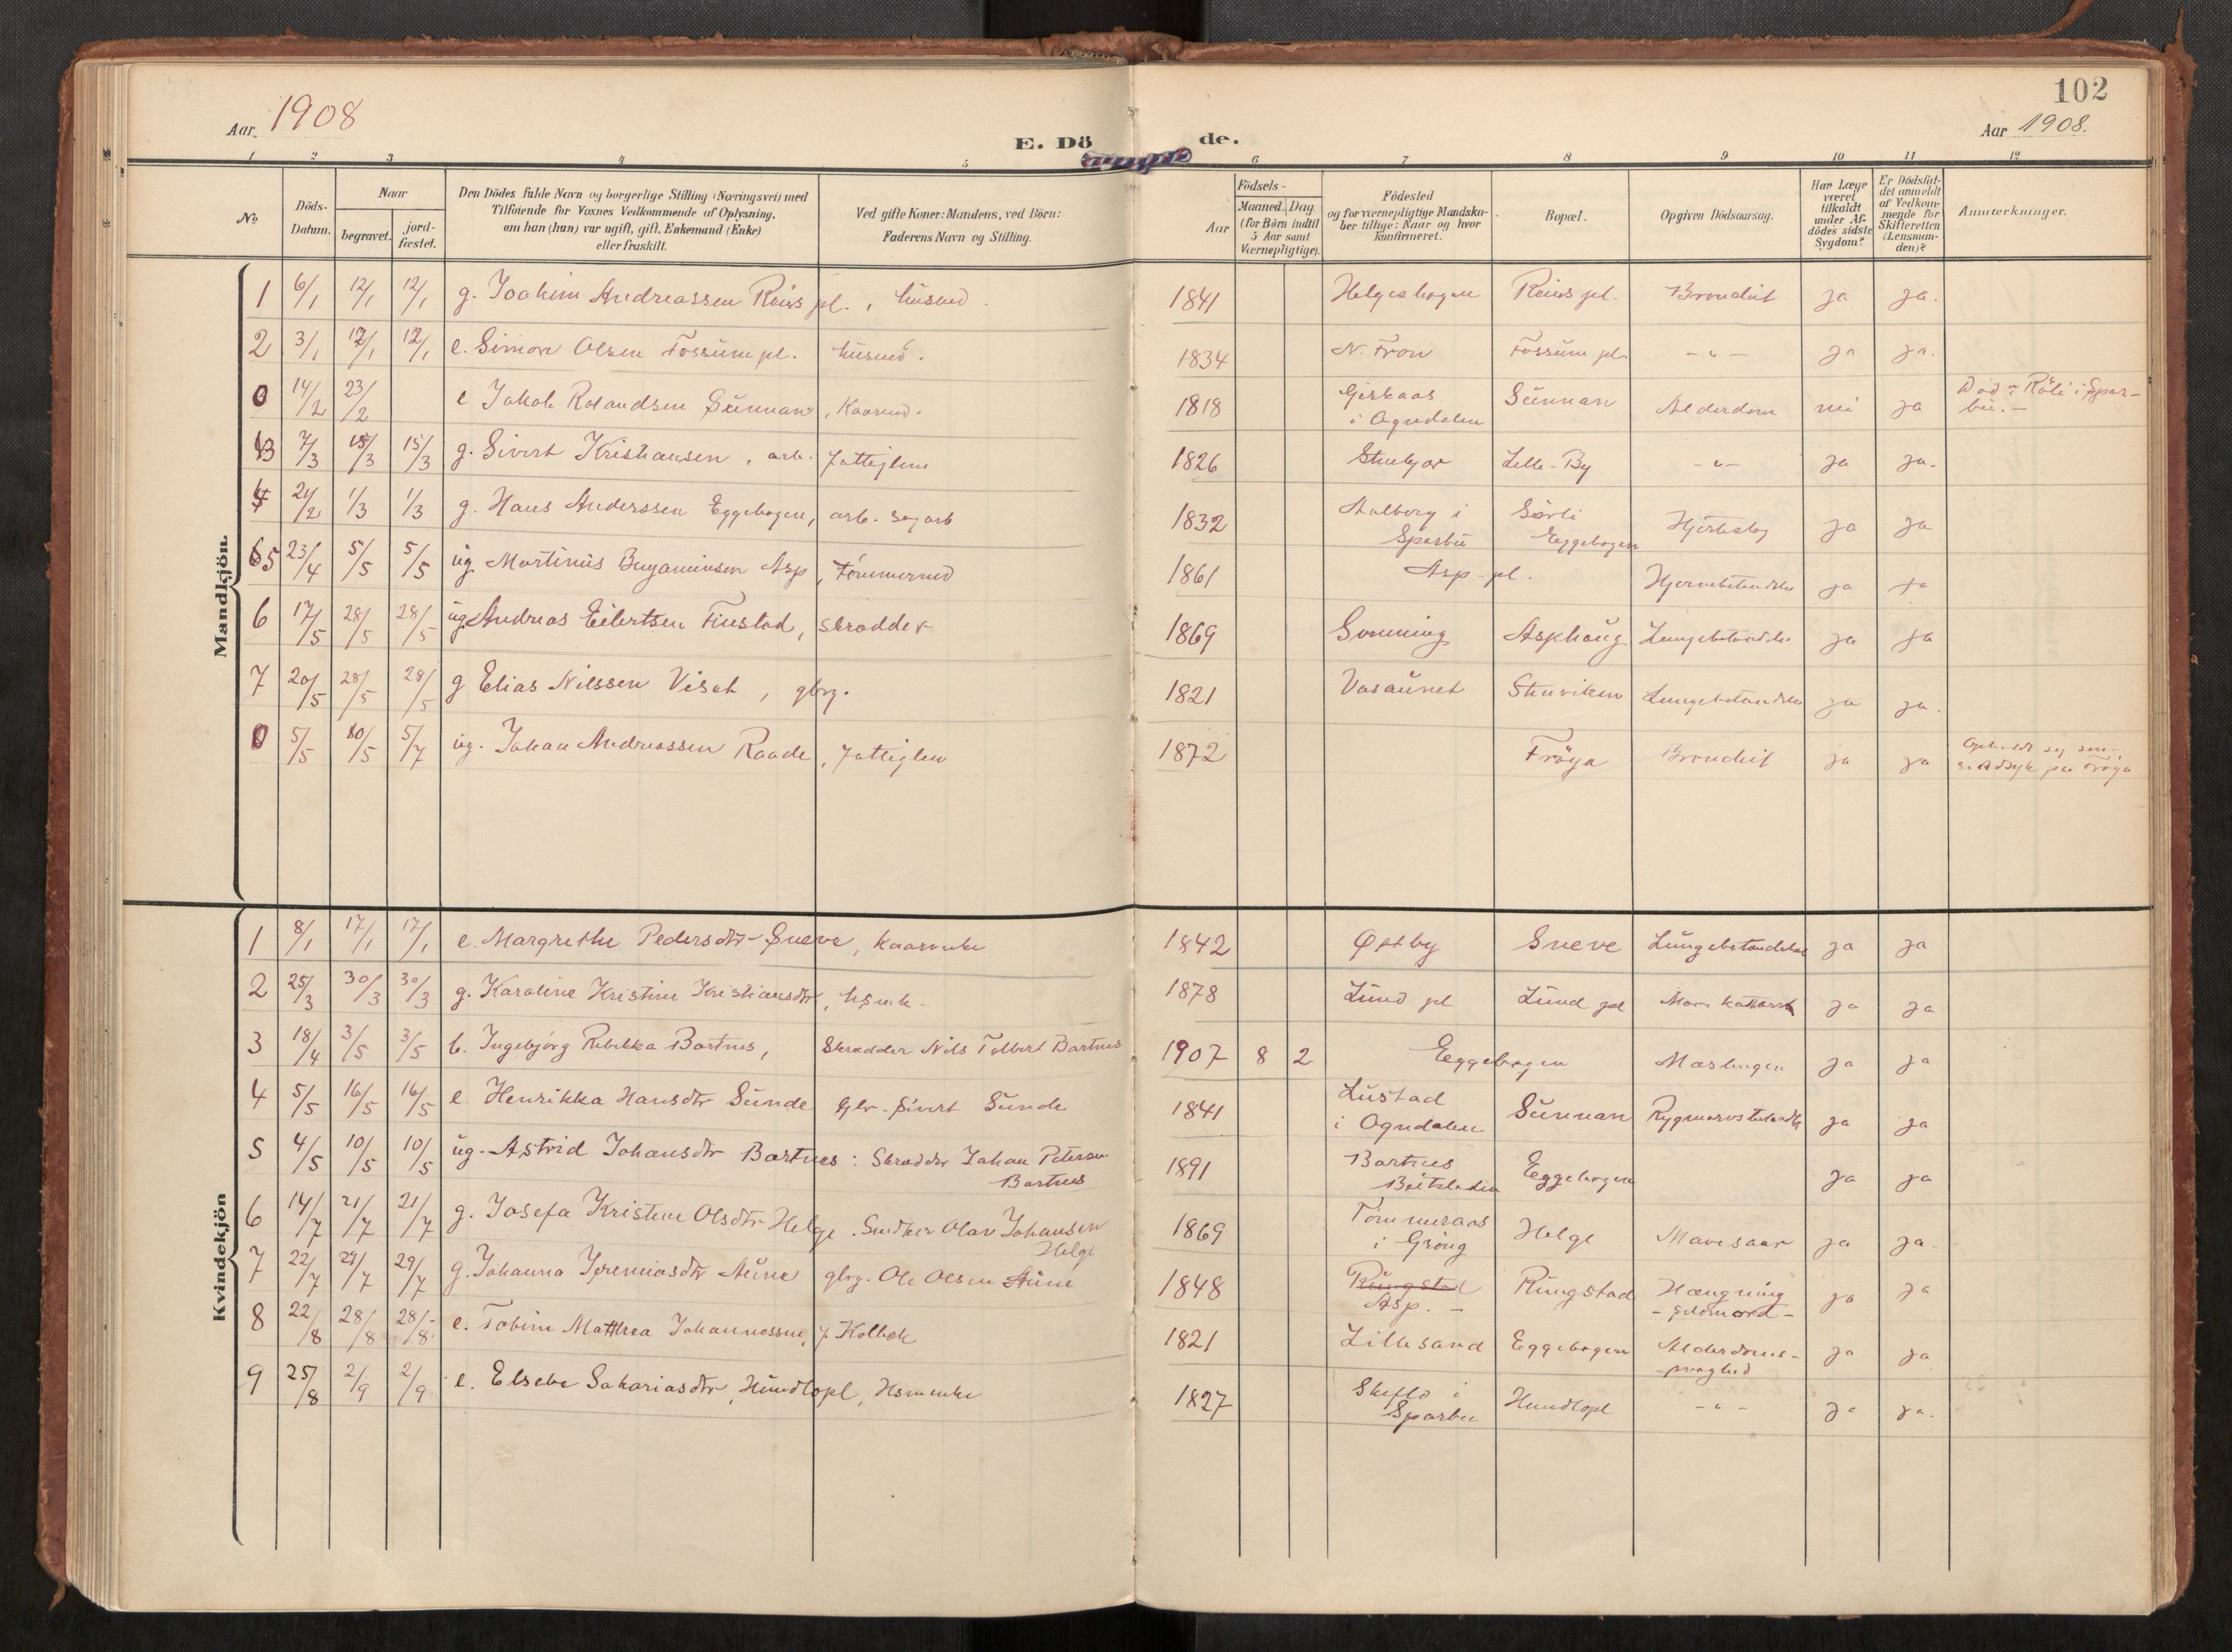 102
Aar. 1908
E. Dö de.
Aar 1908.
1 2 3 4 5 6 7 8 9 10 11 12
No
Döds-Datum.
Naar
begravet. jord-fæstet.
Den Dödes fulde Navn og borgerlige Stilling (Næringsvei) med
Tilföiende for Voxnes Vedkommende af Oplysning,
om han (hun) var ugift, gift, Enkemand (Enke)
eller fraskilt.
Ved gifte Koner: Mandens, ved Börn:
Faderens Navn og Stilling.
Aar
Födsels-
Maaned. Dag.
(for Börn indtil
5 Aar samt
Værnepligtige).
Födested
og for værnepligtige Mandska-
ber tillige: Naar og hvor
konfirmeret.
Bopæl.
Opgiven Dödsaarsag.
Har Læge
været
tilkaldt
under Af-
dödes sidste
Sygdom?
Er Dödsfal-
det anmeldt
af Vedkom-
mende for
Skifteretten
(Lensman-
den)?
Anmerkninger.
Mandkjön.
1 6/1 12/1 12/1 g. Joakim Andreassen Reins pl., husmd. 1841 Helgeshagen Reins pl. Bronchit ja ja.
2 3/1 12/1 12/1 e. Simon Olsen Fossum pl. husmd. 1834 N. Fron Fossum pl. -"- ja ja.
0 14/2 23/2 e Jakob Rolandsen Sunnan, Kaarmd. 1818 Giskaas i Ogndalen Sunnan Alderdom nei ja Död i Röli i Sparbu.-
3 7/3 15/3 15/3 g. Sivert Kristiansen, arb. fattiglem 1826 Stenkjær Lille-By -"- ja ja.
4 21/2 1/3 1/3 g. Hans Anderssen Eggebogen, arb. sagarb 1832 Aalberg i Sparbu Sørli Eggebogen Hjerteslag ja ja
5 23/4 5/5 5/5 ug. Martinus Benjaminsen Asp, Tömmermd 1861 Asp-pl. Hjernebetændelse ja ja
6 17/5 28/5 28/5 ug. Andreas Eilertsen Finstad, skrædder 1869 Svenning Asphaug Lungebetændelse ja ja
7 20/5 28/5 28/5 g Elias Nilssen Viset, gbrg. 1821 Vasaunet Stenviken Lungebetændelse ja ja.
0 5/5 10/5 5/7 ug. Johan Andreassen Raade, fattiglem 1872 Fröya Bronchit ja ja Opholdt sig som sindssyk paa Fröya
Kvindekjön
1 8/1 17/1 17/1 e. Margrethe Pedersdtr Sneve, Kaarenke 1842 Østby Sneve Lungebetændelse ja ja
2 25/3 30/3 30/3 g. Karoline Kristine Kristiansdtr, hsmk. 1878 Lund pl Lund pl Mave kattarrh ja ja
3 18/4 3/5 3/5 b. Ingebjörg Rebekka Bartnes, Skrædder Nils Tolbert Bartnes 1907 8 2 Eggebogen Mæslingen ja ja
4 5/5 16/5 16/5 e Henrikka Hansdtr Sunde Gbr. Sivert Sunde 1841 Lustad i Ogndalen Sunnan Rygmarvsbetændelse ja ja
5 4/5 10/5 10/5 ug. Astrid Johansdtr Bartnes: Skrædder Johan Petersen Bartnes 1891 Bartnes Beitstadin Eggebogen ja ja
6 14/7 21/7 21/7 g. Josefa Kristine Olsdtr Helge. Snedker Olav Johansen Helge 1869 Tömmeraas i Grong Helge Mavesaar ja ja.
7 22/7 29/7 29/7 g. Johanna Jeremiasdtr Aune gbrg. Ole Olsen Aune 1848 Rungstad Asp. - Rungstad Hængning - Selvmord - ja ja
8 22/8 28/8 28/8 e. Tobine Matthea Johannessen, f. Kolbek 1821 Lillesand Eggebogen Alderdoms-svaghed ja ja
9 25/8 2/9 2/9 e. Elsebe Sakariasdtr, Hundlopl, Hsmenke 1827 Skeflo i Sparbu Hundlopl -"- ja ja.